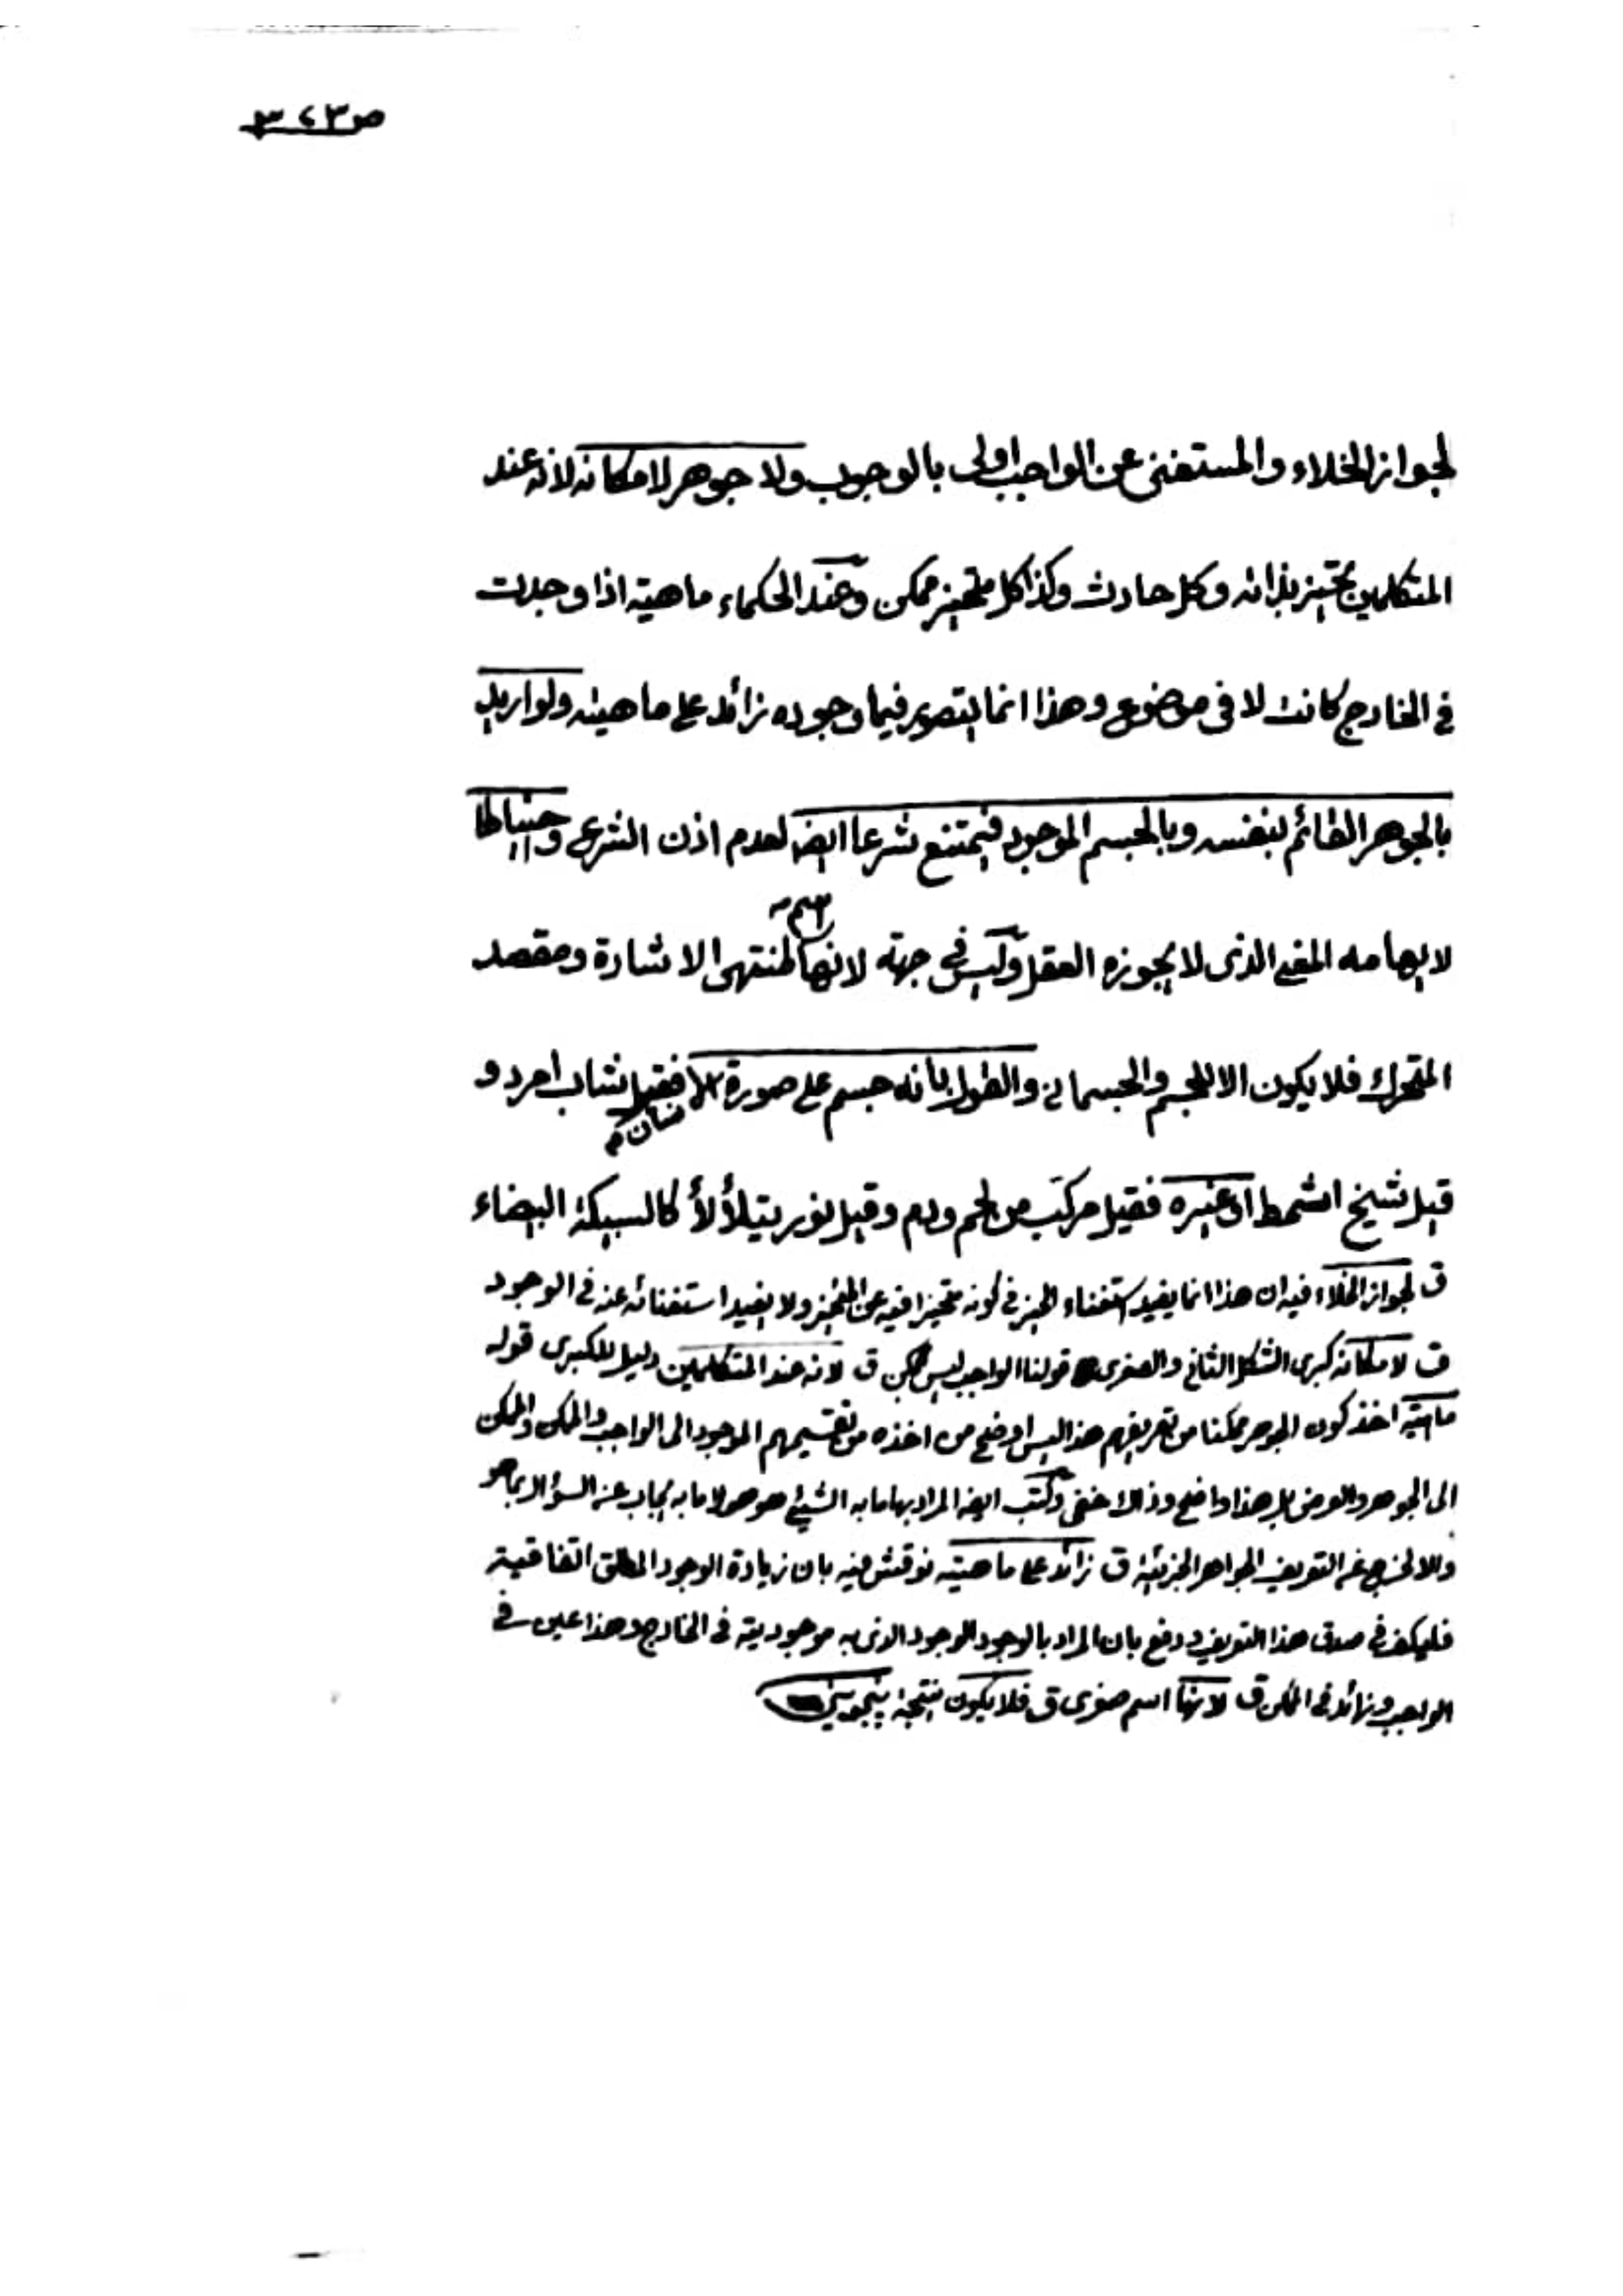 ص ٣٢٣
لجواز الخلاء والمستغنى عن الواجب اولى بالوجوب ولا جوهر لامكانه لانه عند
المتكلمين متحيز بذاته وكل حادث وكذا كل متحيز ممكن وعند الحكماء ماهية اذا وجدت
فى الخارج كانت لا فى موضوع وهذا انما يتصور فيما وجوده زائد على ماهيته ولو اريد
بالجوهر القائم بنفسه وبالجسم الموجود فيمتنع شرعا ايضا لعدم اذن الشرع واحتياطا
لايهامه المعنى الذى لا يجوزه العقل وليس فى جهة لانها اسم لمنتهى الاشارة ومقصد
المتحرك فلا يكون الا للجسم والجسمانى والقول بانه جسم على صورة الانسان فقيل شاب امرد و
قيل شيخ اشمط او غيره فقيل مركب من لحم ودم وقيل نور يتلألأ كالسبيكة البيضاء
ق لجواز الخلاء فيه ان هذا انما يفيد استغناء الحيز فى كونه متحيزا فيه عن المتحيز ولا يفيد استغنائه عنه فى الوجود
ق لامكانه كبرى الشكل الثانى والصغرى قولنا الواجب ليس بممكن ق لانه عند المتكلمين دليل للكبرى قوله
ماهية اخذ كون الجوهر ممكنا من تعريفهم هذا ليس اوضح من اخذه من تقسيمهم الموجود الى الواجب والممكن والممكن
الى الجوهر والعرض بل هذا واضح وذاك خفى وكتب ايضا المراد بها ما به الشيئ هو هو لا ما به يجاب عن السؤال بما هو
والا لخرج عن التعريف الجواهر الجزئية ق زائد على ماهيته نوقش فيه بان زيادة الوجود المطلق اتفاقية
فليكف فى صدق هذا التعريف ودفع بان المراد بالوجود الوجود الذى به موجوديته فى الخارج وهذا عين فى
الواجب وزائد فى الممكن ق لانها اسم صغرى ق فلا يكون نتيجة پنجوينى